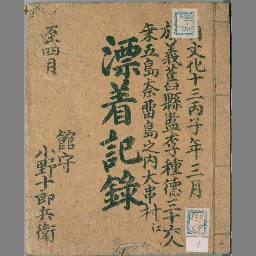 文化十三丙子年三月
故義舊縣監李種德三十六人
乗五島奈留島之内大串村江
漂着記録
至四月
館守
小野十郎兵衛